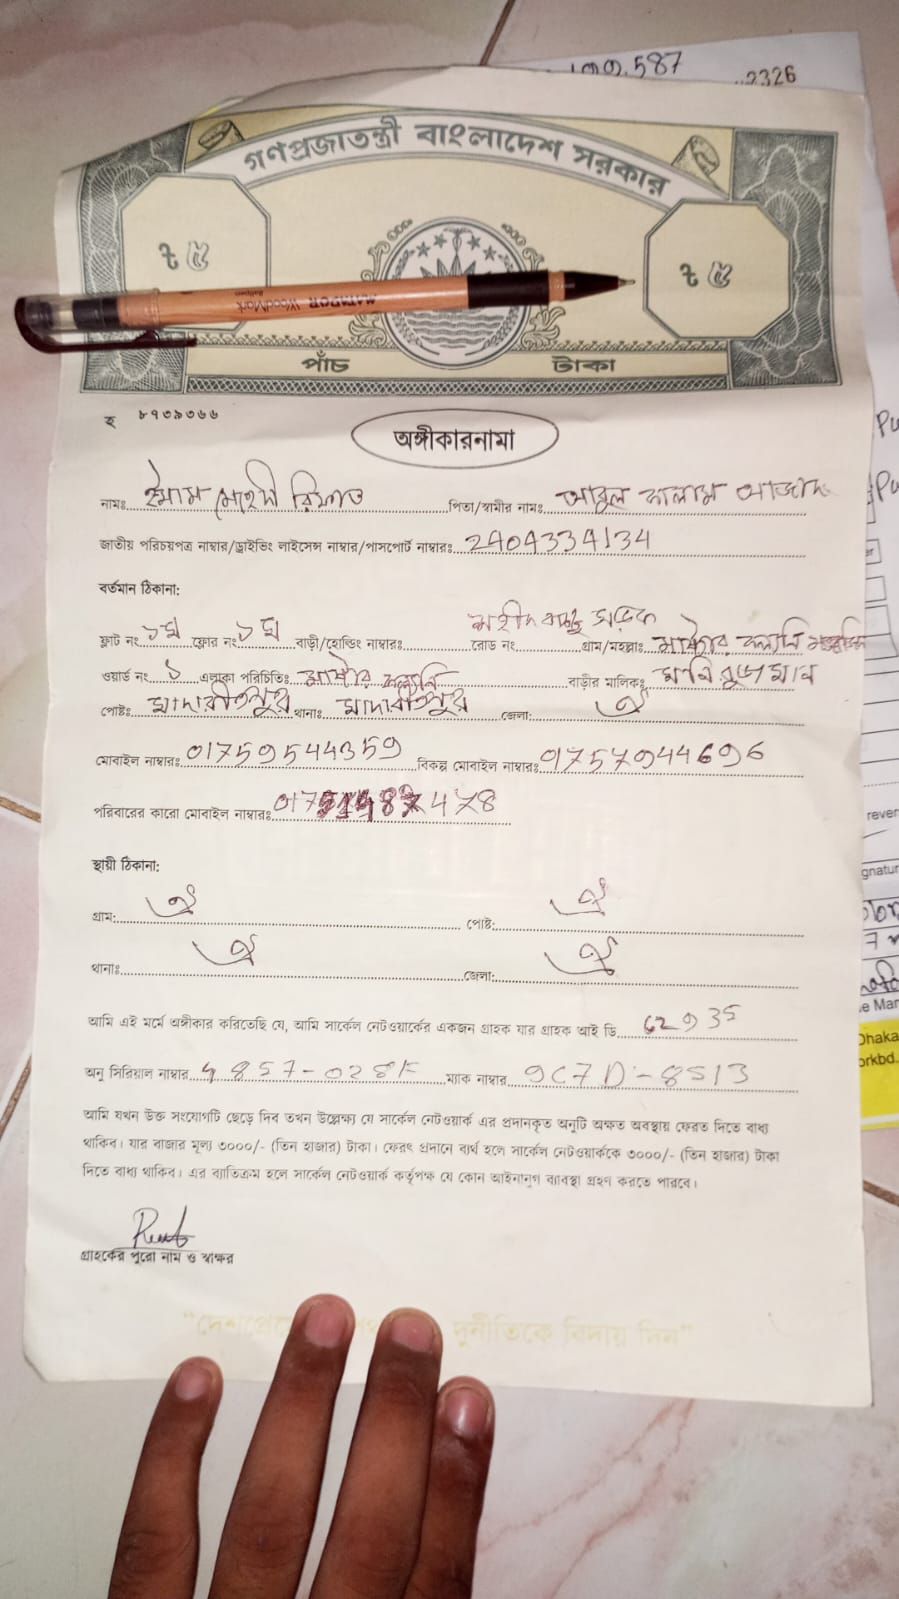 587
2326
গণপ্রজাতন্ত্রী বাংলাদেশ সরকার
৳ ৫ ৳ ৫
MATADOR WoodMark
পাঁচ টাকা
হ ৮৭৩৯৩৬৬
অঙ্গীকারনামা
নামঃ ইমাম মেহেদী রিফাত পিতা/স্বামীর নাম: আবুল কালাম আজাদ
জাতীয় পরিচয়পত্র নাম্বার/ড্রাইভিং লাইসেন্স নাম্বার/পাসপোর্ট নাম্বারঃ 2404334134
বর্তমান ঠিকানা:
ফ্লাট নং ১ম ফ্লোর নং ১ম বাড়ী/হোল্ডিং নাম্বারঃ রোড নং শহীদ বাচ্চু সড়ক গ্রাম/মহল্লাঃ মাষ্টার কলোনি
ওয়ার্ড নং ১ এলাকা পরিচিতিঃ মাষ্টার কলোনি বাড়ীর মালিকঃ মনিরুজ্জামান
পোষ্টঃ মাদারীপুর থানাঃ মাদারীপুর জেলা: ঐ
মোবাইল নাম্বারঃ 01759544359 বিকল্প মোবাইল নাম্বারঃ 01757944696
পরিবারের কারো মোবাইল নাম্বারঃ
স্থায়ী ঠিকানা:
গ্রাম: ঐ পোষ্ট: ঐ
থানাঃ ঐ জেলা: ঐ
আমি এই মর্মে অঙ্গীকার করিতেছি যে, আমি সার্কেল নেটওয়ার্কের একজন গ্রাহক যার গ্রাহক আই ডি 62935
অনু সিরিয়াল নাম্বার ম্যাক নাম্বার 9C7D-8513
আমি যখন উক্ত সংযোগটি ছেড়ে দিব তখন উল্লেক্ষ্য যে সার্কেল নেটওয়ার্ক এর প্রদানকৃত অনুটি অক্ষত অবস্থায় ফেরত দিতে বাধ্য
থাকিব। যার বাজার মূল্য ৩০০০/- (তিন হাজার) টাকা। ফেরৎ প্রদানে ব্যর্থ হলে সার্কেল নেটওয়ার্ককে ৩০০০/- (তিন হাজার) টাকা
দিতে বাধ্য থাকিব। এর ব্যতিক্রম হলে সার্কেল নেটওয়ার্ক কর্তৃপক্ষ যে কোন আইনানুগ ব্যাবস্থা গ্রহণ করতে পারবে।
গ্রাহকের পুরো নাম ও স্বাক্ষর
দুর্নীতিকে বিদায় দিন"
Dhaka